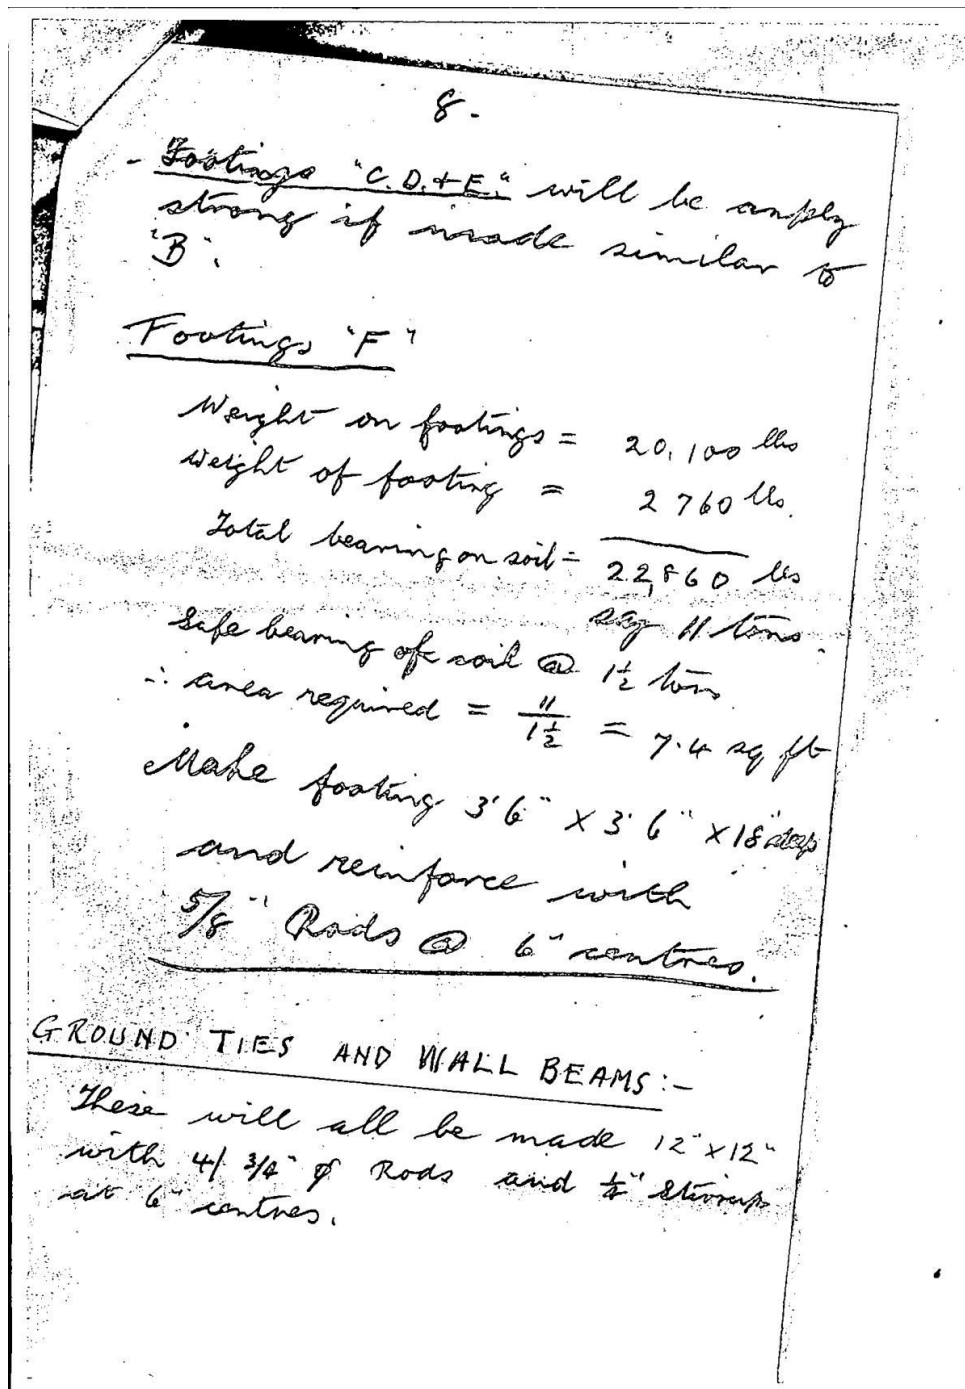 8.
- Footings "C.D.+E." will be amply
strong if made similar to
"B".
Footings "F"
Weight on footings = 20,100 lbs
weight of footing = 2760 lbs.
Total bearing on soil = 22,860 lbs
say 11 tons.
Safe bearing of soil @ 1½ tons
∴ area required = 11/1½ = 7.4 sq ft
Make footing 3'6" x 3'6" x 18" deep
and reinforce with
5/8" Rods @ 6" centres.
GROUND TIES AND WALL BEAMS:-
These will all be made 12"x12"
with 4/ 3/4" φ Rods and ¼" Stirrups
at 6" centres.